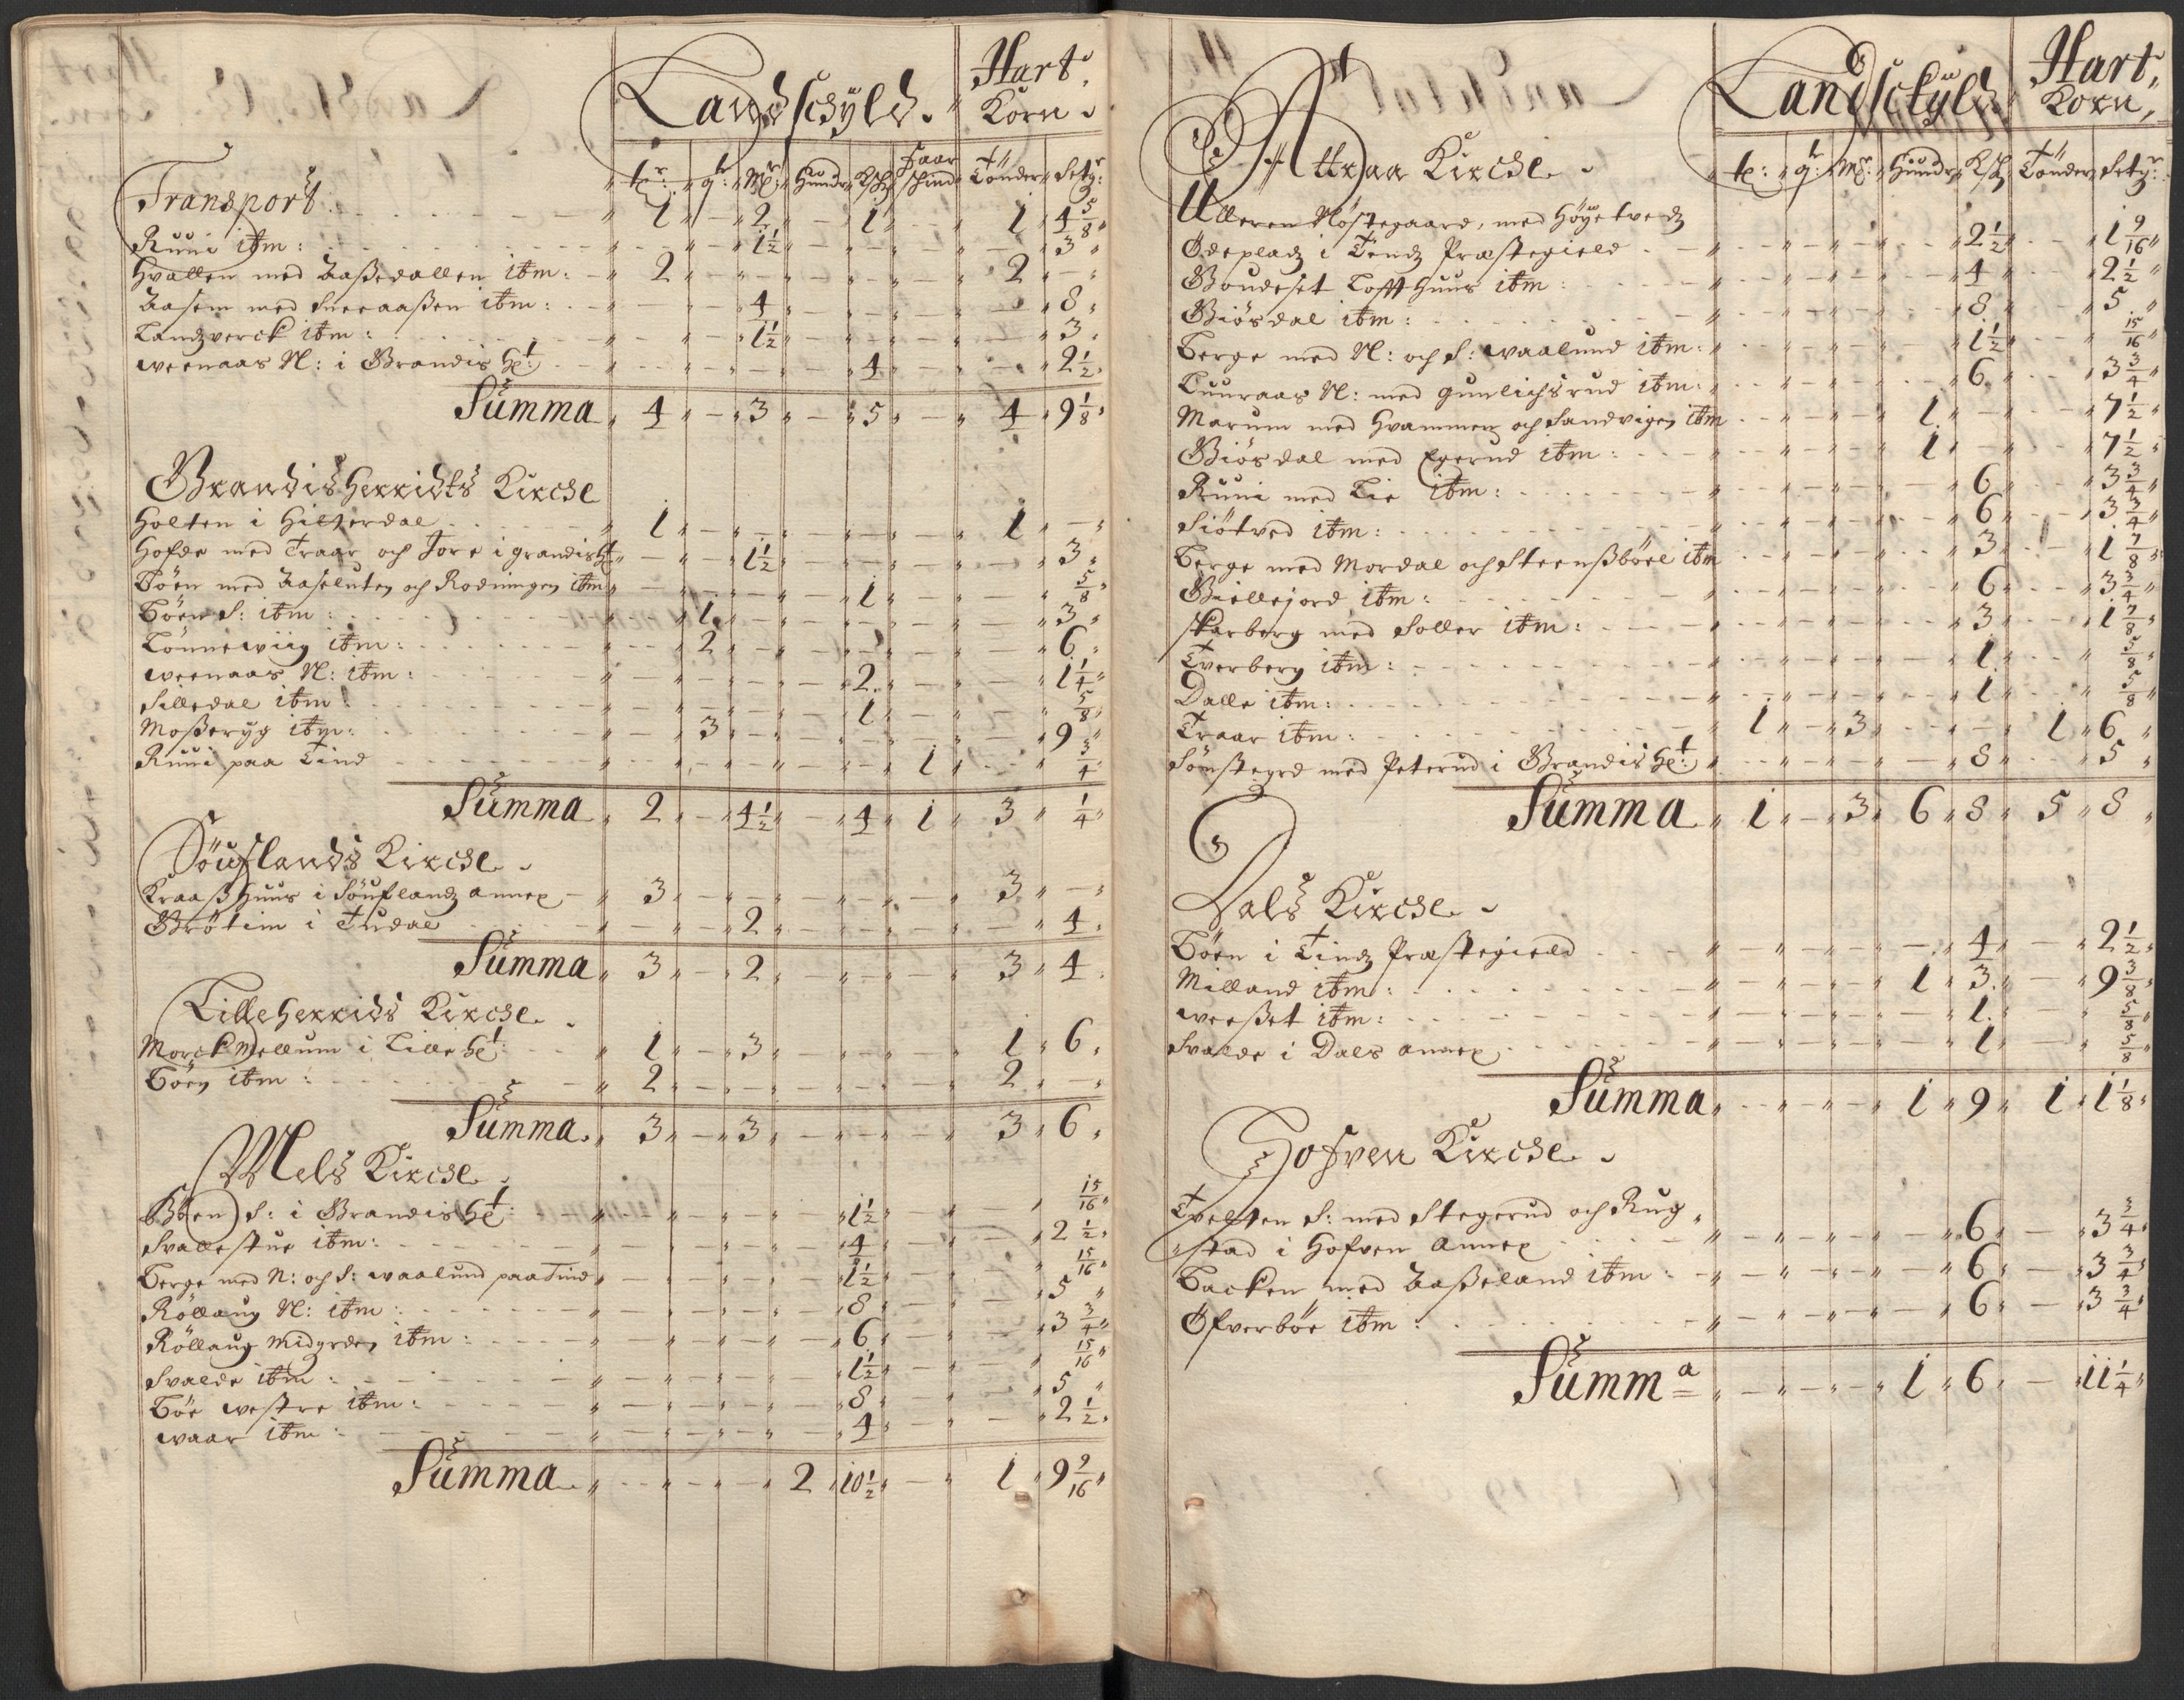 Landschÿld. Hart Korn
tr: qr: Mr: Hundr Ksk faar schind Tönder Setg:
Transport 1 - 2 - 1 - 1 4 5/8
Ruui itm: 1 1/2 - 3
Hvallen med Aaßedallen itm: 2 - 2 -
Aasem med Sneeaaßen itm: 4 - 8
Landzverck itm: 1 1/2 - 3
weenaas N: i Grandis Ht: 4 - 2 1/2
Summa 4 - 3 - 5 - 4 9 1/8
Grandisherridts Kirche
Holten i Hitterdal 1 - 1 -
Hofde med Traar och Tore i grandisHt 1 1/2 - 3
Böen med Aaseluten och Rodningen itm 1 - 5/8
Böen S: itm: 1 - 3
Lönnewiig itm: 2 - 6
weenaas N: itm: 2 - 1 1/4
Silledal itm: 1 - 5/8
Moßeryg itm: 3 - 9
Ruui paa Tind 1 - 3/4
Summa 2 - 4 1/2 - 4 1 3 1/4
Söuflands Kirche
Kraaß Huus i Söuflandz annex 3 - 3 -
Grötim i Tudal 2 - 4
Summa 3 - 2 - 3 4
Lilleherrids Kirche
Morck Mellum i Lille Ht: 1 - 3 - 1 6
Böen itm: 2 - 2 -
Summa 3 - 3 - 3 6
Mels Kirche
Böen S: i Grandis Ht: 1 1/2 - 15/16
Svallestue itm: 4 - 2 1/2
Berge med N: och S: waalund paa Tind 1 1/2 - 15/16
Röllaug N: itm: 8 - 5
Röllaug midgrden itm: 6 - 3 3/4
Svalde itm: 1 1/2 - 15/16
Böe westre itm: 8 - 5
waar itm: 4 - 2 1/2
Summa 2 10 1/2 - 1 9 9/16
Landschÿld Hart Korn
Attraa Kirche
t: q: Mr: Hundr Ksk Tönder Setgr:
Ulleren Nöstegaard, med Höyetvedz
Ödepladz i Tendz Præstegield 2 1/2 - 1 9/16
Boudeset Loffthuus itm: 4 - 2 1/2
Giösdal itm: 8 - 5
Berge med N: och S: waalund itm: 1 1/2 - 15/16
Luuraas N: med gunlichsrud itm: 6 - 3 3/4
Marum med Hvammen och Sandvigen itm 1 - 7 1/2
Giösdal med Egerud itm: 1 - 7 1/2
Ruui med Lie itm: 6 - 3 3/4
Siötved itm: 6 - 3 3/4
Berge med Mordal och Steensböel itm 3 - 1 7/8
Giellejord itm: 6 - 3 3/4
Skarberg med Soller itm: 3 - 1 7/8
Tverberg itm: 1 - 5/8
Dalle itm: 1 - 5/8
Traar itm: 1 - 3 - 1 6
Sönstegrd med Peterud i Grandis Ht: 8 - 5
Summa 1 - 3 6 8 5 8
Dals Kirche
Böen i Tindz Præstegield 4 - 2 1/2
Milland itm: 1 3 - 9 3/8
weeßet itm: 1 - 5/8
Svalde i Dals annex 1 - 5/8
Summa 1 9 1 1 1/8
Hofven Kirche
Tvelten S: med Stegerud och Rug
stad i Hofven annex 6 - 3 3/4
Backen med Aaßeland itm: 6 - 3 3/4
Öfverböe itm: 6 - 3 3/4
Summa 1 6 - 11 1/4